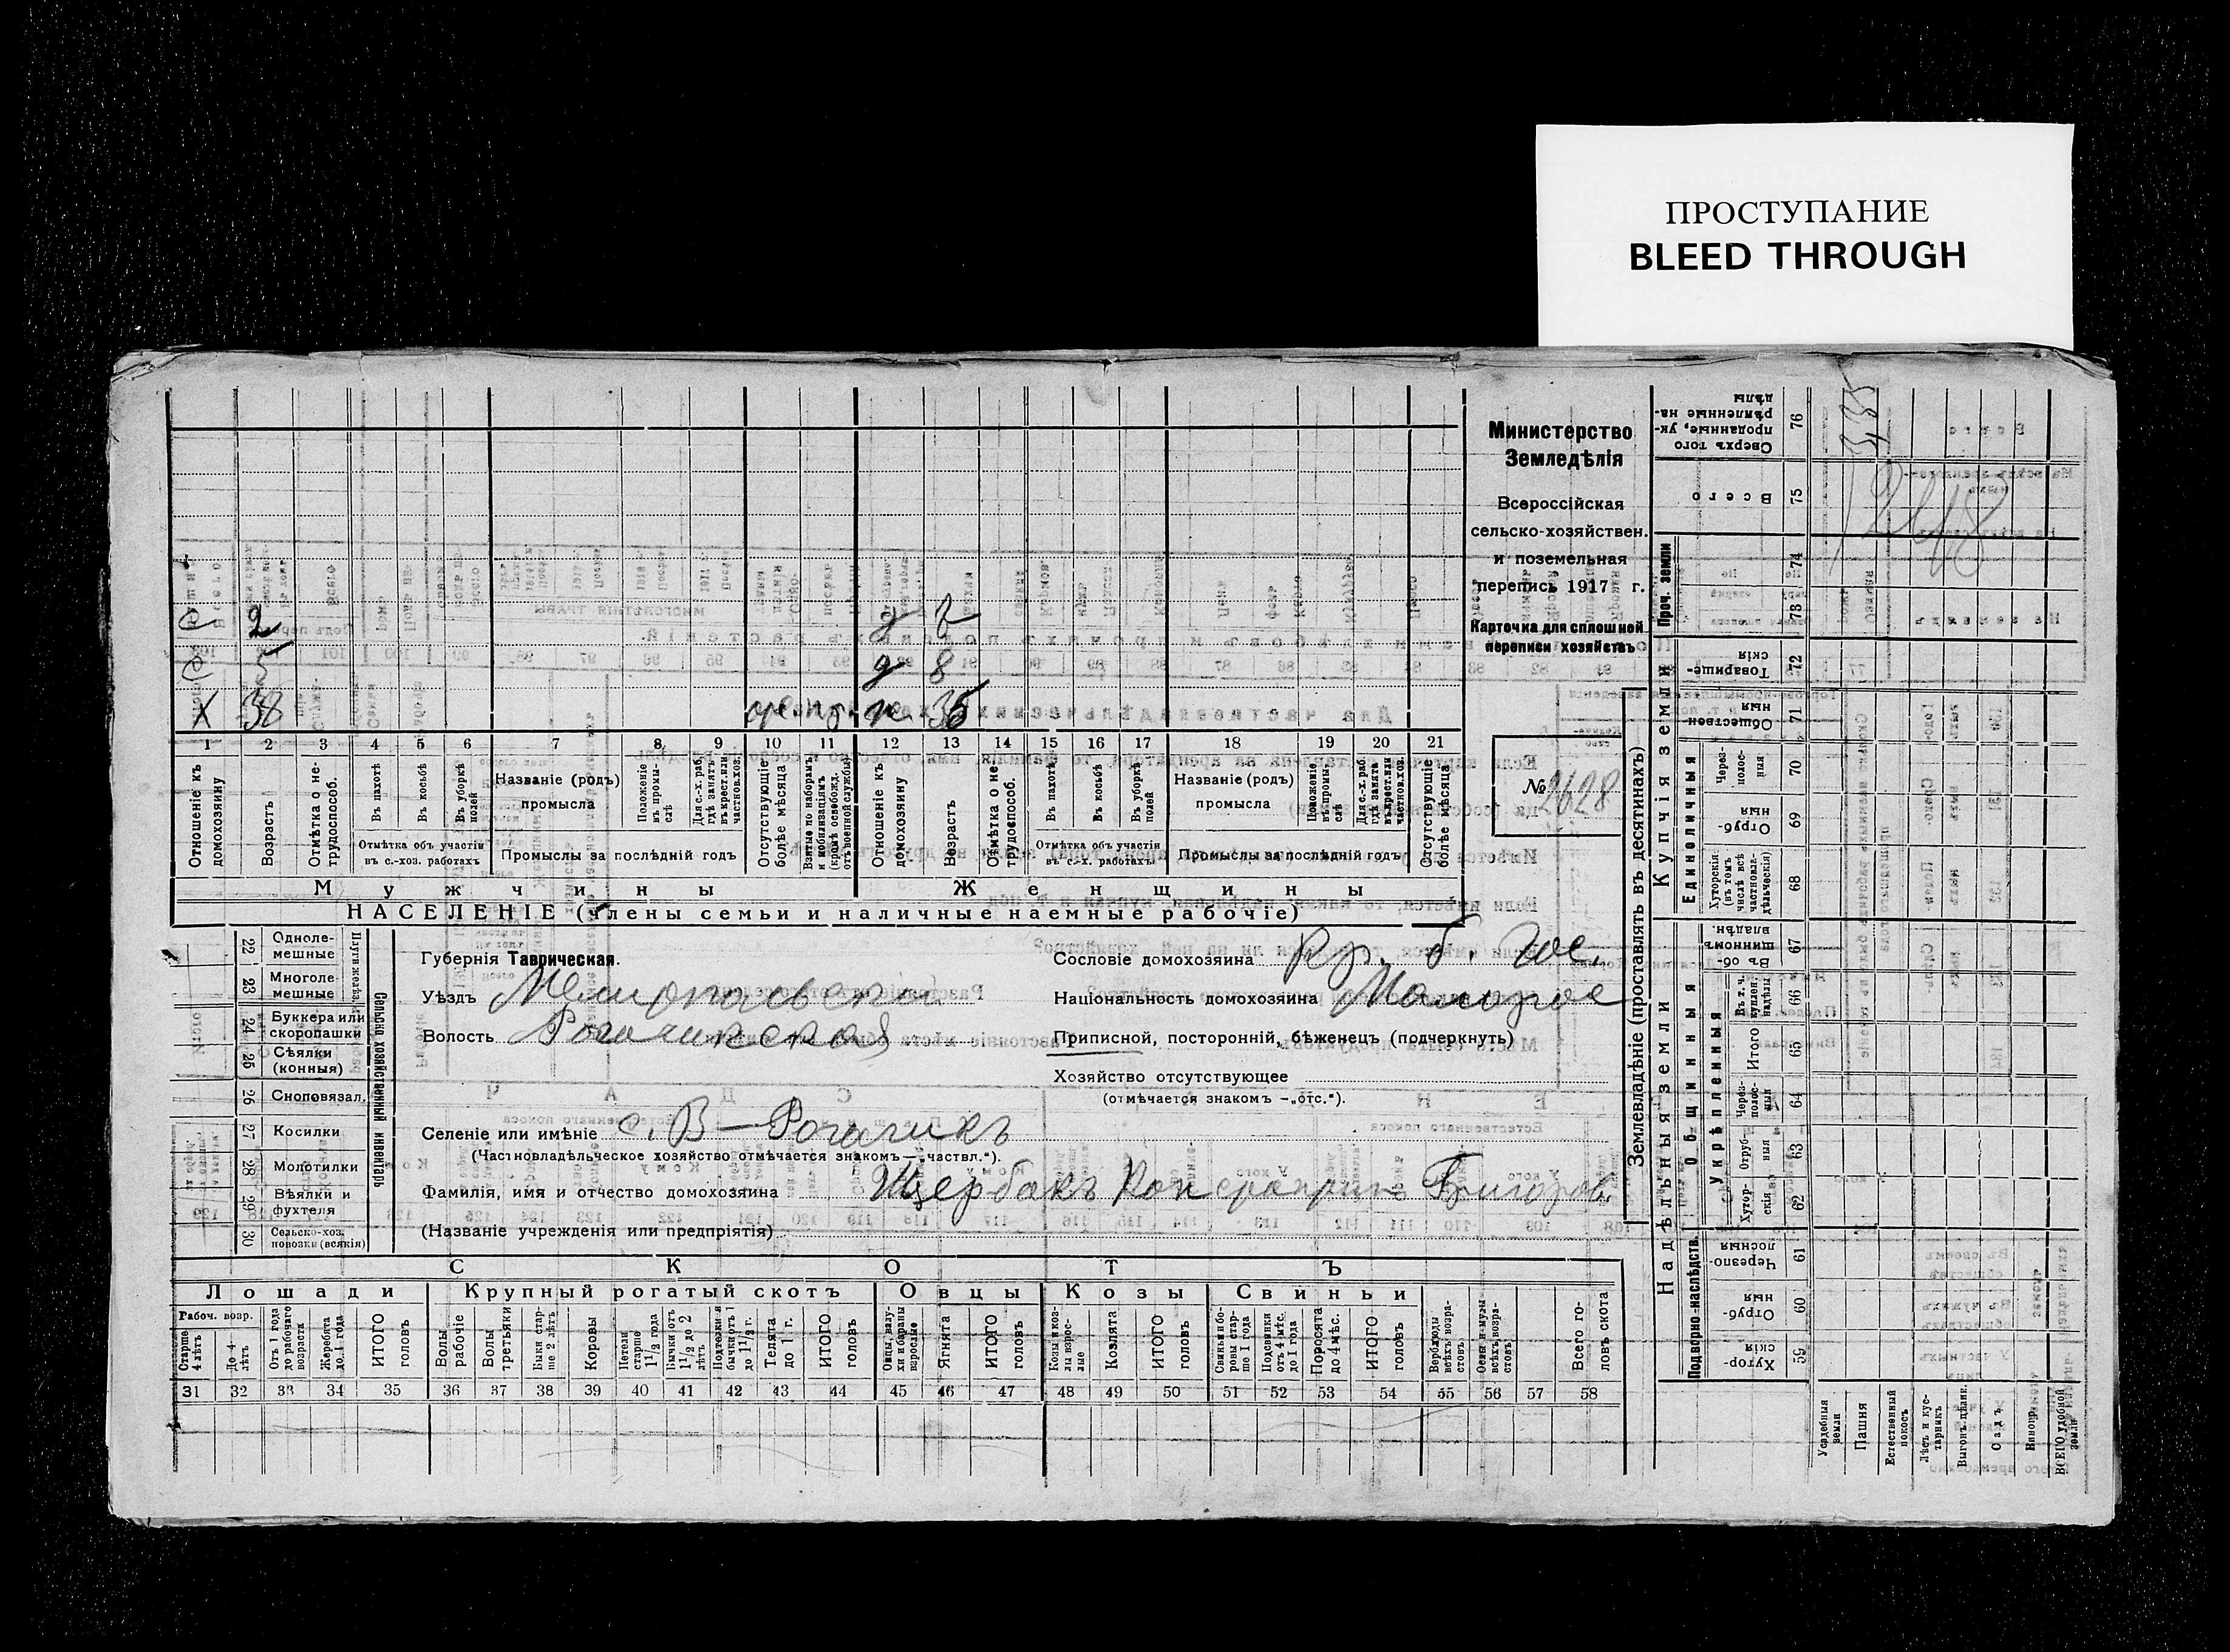 ПРОСТУПАНИЕ
BLEED THROUGH
Министерство
Земледѣлія
Всероссійская
сельско-хозяйствен.
и поземельная
перепись 1917 г.
Карточка для сплошной
переписи хозяйствъ
№ 2628
с 2 д
с 5 д 8
х 38 ж. 35
1 2 3 4 5 6 7 8 9 10 11 12 13 14 15 16 17 18 19 20 21
Отношеніе къ домохозяину
Возрастъ
Отмѣтка о не-трудоспособ.
Въ пахотѣ
Въ косьбѣ
Въ уборкѣ полей
Отмѣтка объ участіи
въ с.-хоз. работахъ
Названіе (родъ)
промысла
Положеніе въ промы-слѣ
Для с.-х. раб. гдѣ занятъ въ крест. или частнов. хоз.
Промыслы за послѣдній годъ
Отсутствующіе болѣе мѣсяца
Взятые по наборамъ и мобилизаціямъ (кромѣ освобожд. отъ военной службы)
Отношеніе къ домохозяину
Возрастъ
Отмѣтка о не трудоспособ.
Въ пахотѣ
Въ косьбѣ
Въ уборкѣ полей
Отмѣтка объ участіи
въ с.-х. работахъ
Названіе (родъ)
промысла
Положеніе въ промы-слѣ
Для с.-х. раб. гдѣ занята въ крест. или частнов. хоз.
Промыслы за послѣдній годъ
Отсутствующіе болѣе мѣсяца
Мужчины
Женщины
НАСЕЛЕНІЕ (члены семьи и наличные наемные рабочіе)
Сельско-хозяйственный инвентарь
22 Одноле-мешные
23 Многоле-мешные
24 Буккера или скоропашки
25 Сѣялки (конныя)
26 Сноповязал.
27 Косилки
28 Молотилки
29 Вѣялки и фухтеля
30 Сельско-хоз. повозки (всякія)
Губернія Таврическая.
Уѣздъ Мелитопольскій
Волость Рогачинская
Сословіе домохозяина Кр. б.
Національность домохозяина Малорос
Приписной, посторонній, бѣженецъ (подчеркнуть)
Хозяйство отсутствующее
(отмѣчается знакомъ —„отс.“).
Селеніе или имѣніе с. В — Рогачикъ
(Частновладѣльческое хозяйство отмѣчается знакомъ—„частвл.“).
Фамилія, имя и отчество домохозяина Щербакъ Константинъ Григоров.
(Названіе учрежденія или предпріятія)
СКОТЪ
Лошади
Крупный рогатый скотъ
Овцы
Козы
Свиньи
Рабоч. возр.
Старше 4 лѣтъ
До 4 лѣтъ
Отъ 1 года до рабочаго возраста
Жеребята до 1 года
ИТОГО головъ
Волы рабочіе
Волы третьяки
Быки стар-ше 2 лѣтъ
Коровы
Нетели старше 1 1/2 года
Бычки отъ 1 1/2 до 2 лѣтъ
Подтелки и бычки отъ 1 до 1 1/2 г.
Телята до 1 г.
ИТОГО головъ
Овцы, валу-хи и бараны взрослые
Ягнята
ИТОГО головъ
Козы и коз-лы взрос-лые
Козлята
ИТОГО головъ
Свиньи и бо-ровы стар-ше 1 года
Подсвинки отъ 4 мѣс. до 1 года
Поросята до 4 мѣс.
ИТОГО головъ
Верблюды всѣхъ возра-стовъ
Ослы и мулы всѣхъ возра-стовъ
Всего го-ловъ скота
31 32 33 34 35 36 37 38 39 40 41 42 43 44 45 46 47 48 49 50 51 52 53 54 55 56 57 58
Землевладѣніе (проставлять въ десятинахъ)
Надѣльныя земли
Купчія земли
Проч. земли
Подворно-наслѣдств.
Общинныя
Укрѣпленныя
Единоличныя
Сверхъ того проданные, ук-рѣпленные на-дѣлы 76
Всего 75
74
73
Товарище-скія 72
Обществен-ныя 71
Через-полос-ныя 70
Отруб-ныя 69
Хуторскія (въ томъ числѣ всѣ частновла-дѣльческія) 68
Въ об-щинномъ владѣн. 67
Въ т. ч. куплен. надѣлы 66
Итого 65
Через-полос-ныя 64
Отруб-ныя 63
Хутор-скія 62
Черезпо-лосныя 61
Отруб-ныя 60
Хутор-скія 59
Усадебныя земли
Пашня
Естественный покосъ
Лѣсъ и кус-тарникъ
Выгонъ, цѣлин.
Садъ
Виногр.
ВСЕГО удобной земли